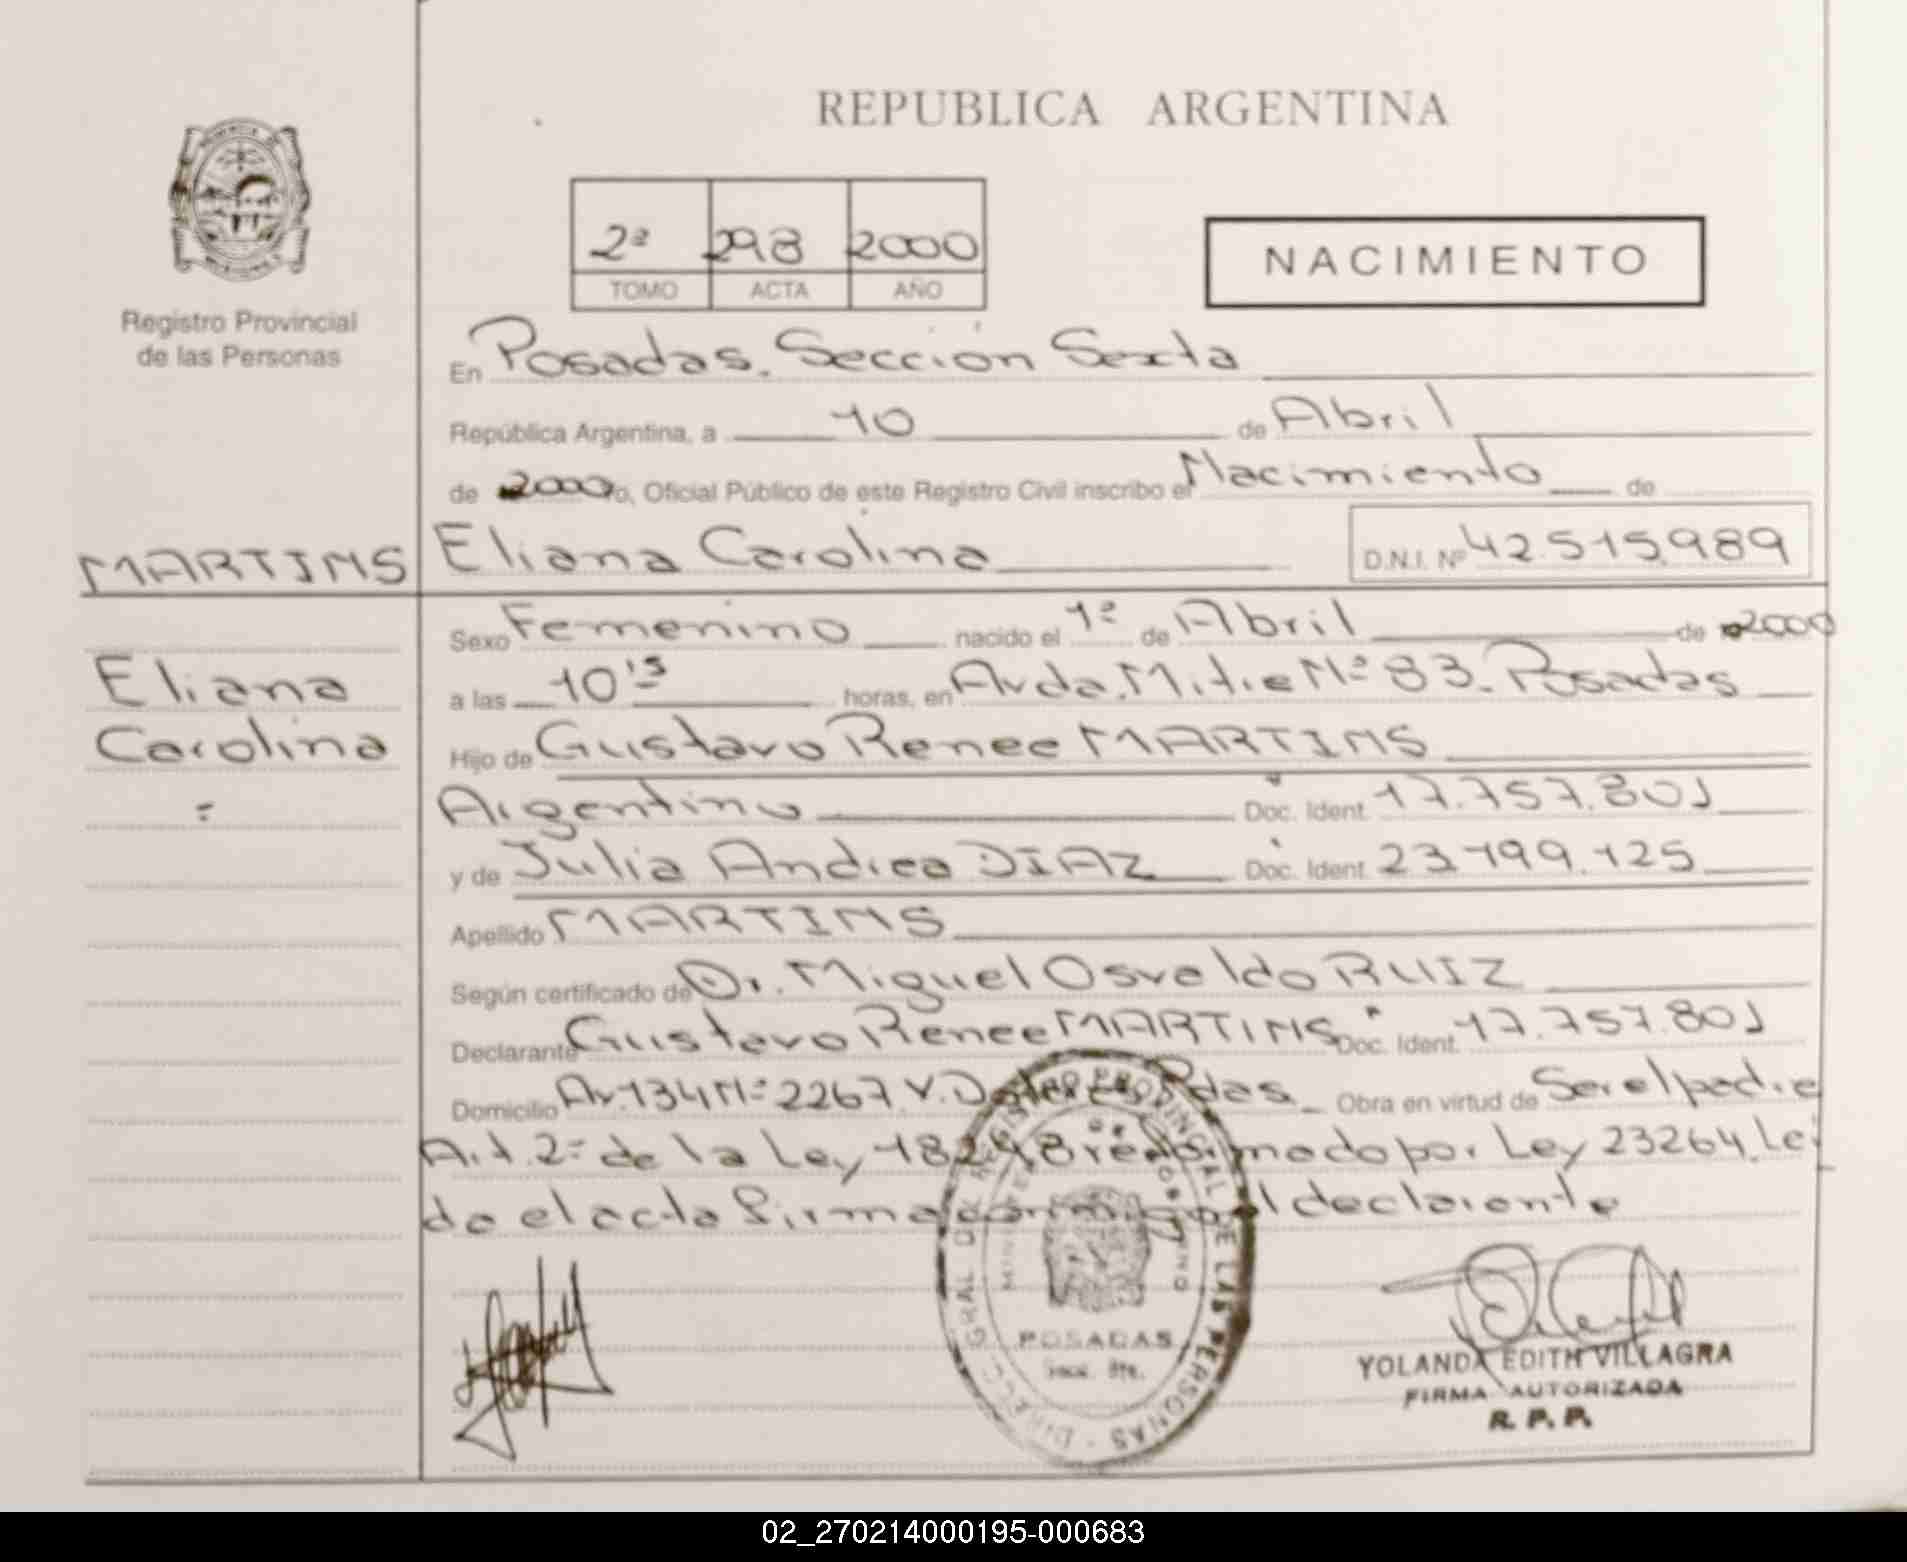 REPUBLICA ARGENTINA
2ª 298 2000
TOMO ACTA AÑO
NACIMIENTO
Registro Provincial
de las Personas
En Posadas. Sección Sexta
República Argentina, a 10 de Abril
de 2000 yo, Oficial Público de este Registro Civil inscribo el Nacimiento de
MARTINS Eliana Carolina D.N.I. Nº 42.515.989
Eliana
Carolina
=
Sexo Femenino nacido el 1º de Abril de 2000
a las 10'15 horas, en Avda. Mitre Nº 83. Posadas
Hijo de Gustavo Renee MARTINS
Argentino Doc. Ident. 17.757.801
y de Julia Andrea DIAZ Doc. Ident. 23.199.125
Apellido MARTINS
Según certificado de Dr. Miguel Osvaldo RUIZ
Declarante Gustavo Renee MARTINS Doc. Ident. 17.757.801
Domicilio Av. 134 Nº 2267 V. Pdas. Obra en virtud de Ser el padre
Art. 2º de la Ley 18248 reformado por Ley 23264. Lei
do el acta firma conmigo el declarante
DIRECC. GRAL DEL REGISTRO PROVINCIAL DE LAS PERSONAS
MINISTERIO DE GOBIERNO
POSADAS
YOLANDA EDITH VILLAGRA
FIRMA AUTORIZADA
R. P. P.
02_270214000195-000683